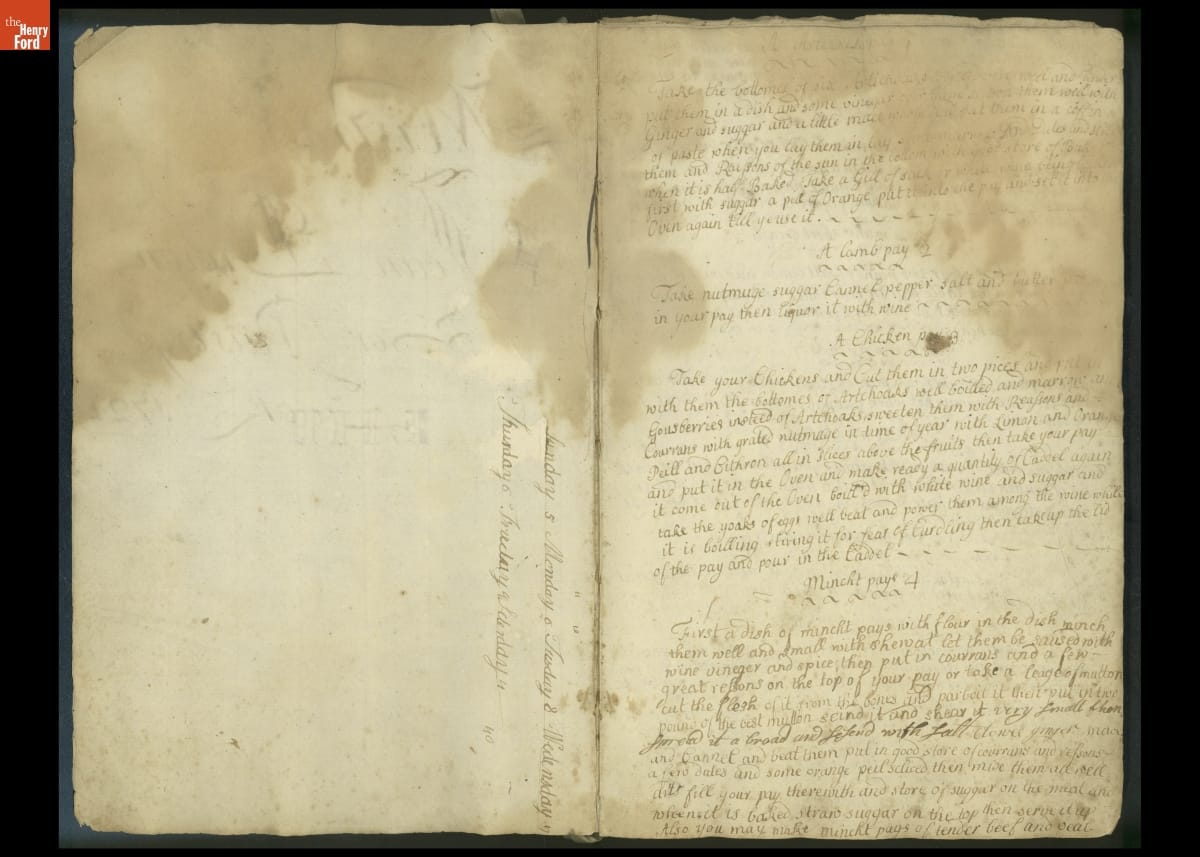 the
Henry
Ford
Sunday 5 Monday 6 Tusday 8 Wedensday
Thursday 6 Friday Saturday
40
Take the bottomes of six Artichoaks well and
put them in a dish and some vineger them well with
Ginger and suggar and a little mace put them in a coffin
of paste when you lay them in lay And dates and
them and Reasons of the sun in the bottom with good store of
when it is half Baked Take a Gill of sack or white wine being
first with suggar a peil of Orange put it into the pay and set it into
Oven again till ye use it.
A lamb pay 2
Take nutmuge suggar Cannel pepper salt and butter
in your pay then liquor it with wine
A Chicken pay 3
Take your Chickens and Cut them in two pices and put in
with them the bottomes of Artchoaks well boilled and marrow
Gousberries insteed of Artchoaks sweeten them with Reasons and
Courrans with grated nutmage in time of year with Limon and Orange
Peill and Cithron all in slices above the fruits then take your pay
and put it in the Oven and make ready a quantity of Caddel again
it come out of the Oven boill'd with white wine and suggar and
take the yoaks of eggs well beat and power them among the wine while
it is boilling stiring it for fear of Curdling then take up the lid
of the pay and pour in the Caddel
Minckt pays 4
First a dish of minckt pays with flour in the dish minch
them well and small with shewat let them be saused with
wine vineger and spice, then put in courrans and a few
great resons on the top of your pay or take a leage of mutton
cut the flesh of it from the bones and parboil it then put in two
pound of the best mutton and shear it very small then
spread it a broad and with salt Clowes ginger mace
and Cannel and beat them put in good store of courrans and ressons
a few dates and some orange peil sliced then mixe them all well
fill your pay therewith and store of suggar on the meat and
when it is baked straw suggar on the top then serve it up
Also you may make minckt pays of tender beef and veal